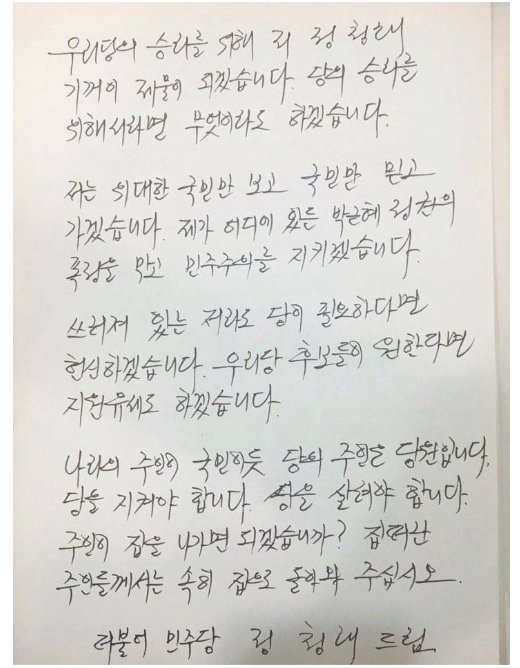 우리당의 승리를 위해 저 정청래
기꺼이 제물이 되겠습니다. 당의 승리를
위해서라면 무엇이라도 하겠습니다.
저는 위대한 국민만 보고 국민만 믿고
가겠습니다. 제가 어디에 있든 박근혜 정권의
폭정을 막고 민주주의를 지키겠습니다.
쓰러져 있는 저라도 당이 필요하다면
헌신하겠습니다. 우리당 후보들이 원한다면
지원유세도 하겠습니다.
나라의 주인이 국민이듯 당의 주인은 당원입니다.
당을 지켜야 합니다. 당을 살려야 합니다.
주인이 집을 나가면 되겠습니까? 집떠난
주인들께서는 속히 집으로 돌아와 주십시오.
더불어 민주당 정청래 드림